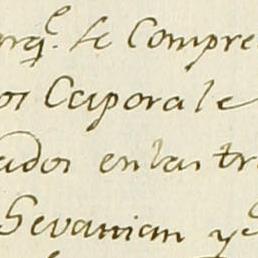 arq.e se Compre
os Caporale
ados en las tr
Sevauian y